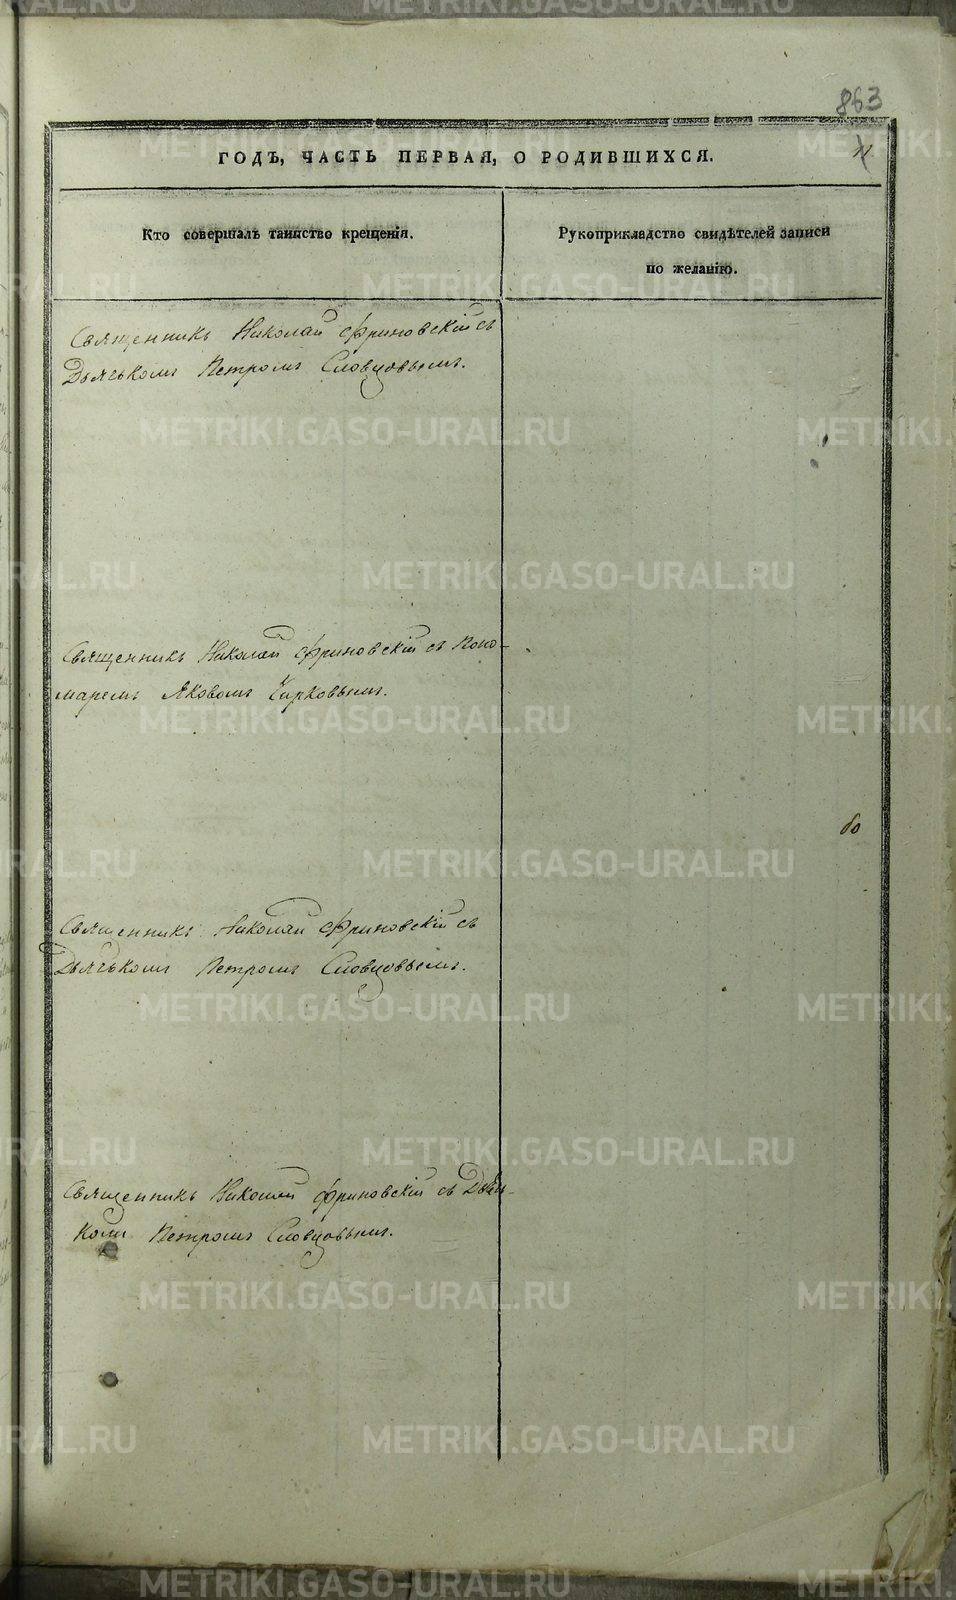 863
ГОДЪ, ЧАСТЬ ПЕРВАЯ, О РОДИВШИХСЯ.
Кто совершалъ таинство крещенія.
Рукоприкладство свидѣтелей записи
по желанію.
Священникъ Николай Фриновскій съ
Дьячькомъ Петромъ Словцовымъ.
Священникъ Николай Фриновскій съ Поно-
маремъ Яковомъ Чирковымъ.
Священникъ Николай Фриновскій съ
Дьячькомъ Петромъ Словцовымъ.
Священникъ Николай Фриновскій съ Дьяч-
комъ Петромъ Словцовымъ.
METRIKI.GASO-URAL.RU